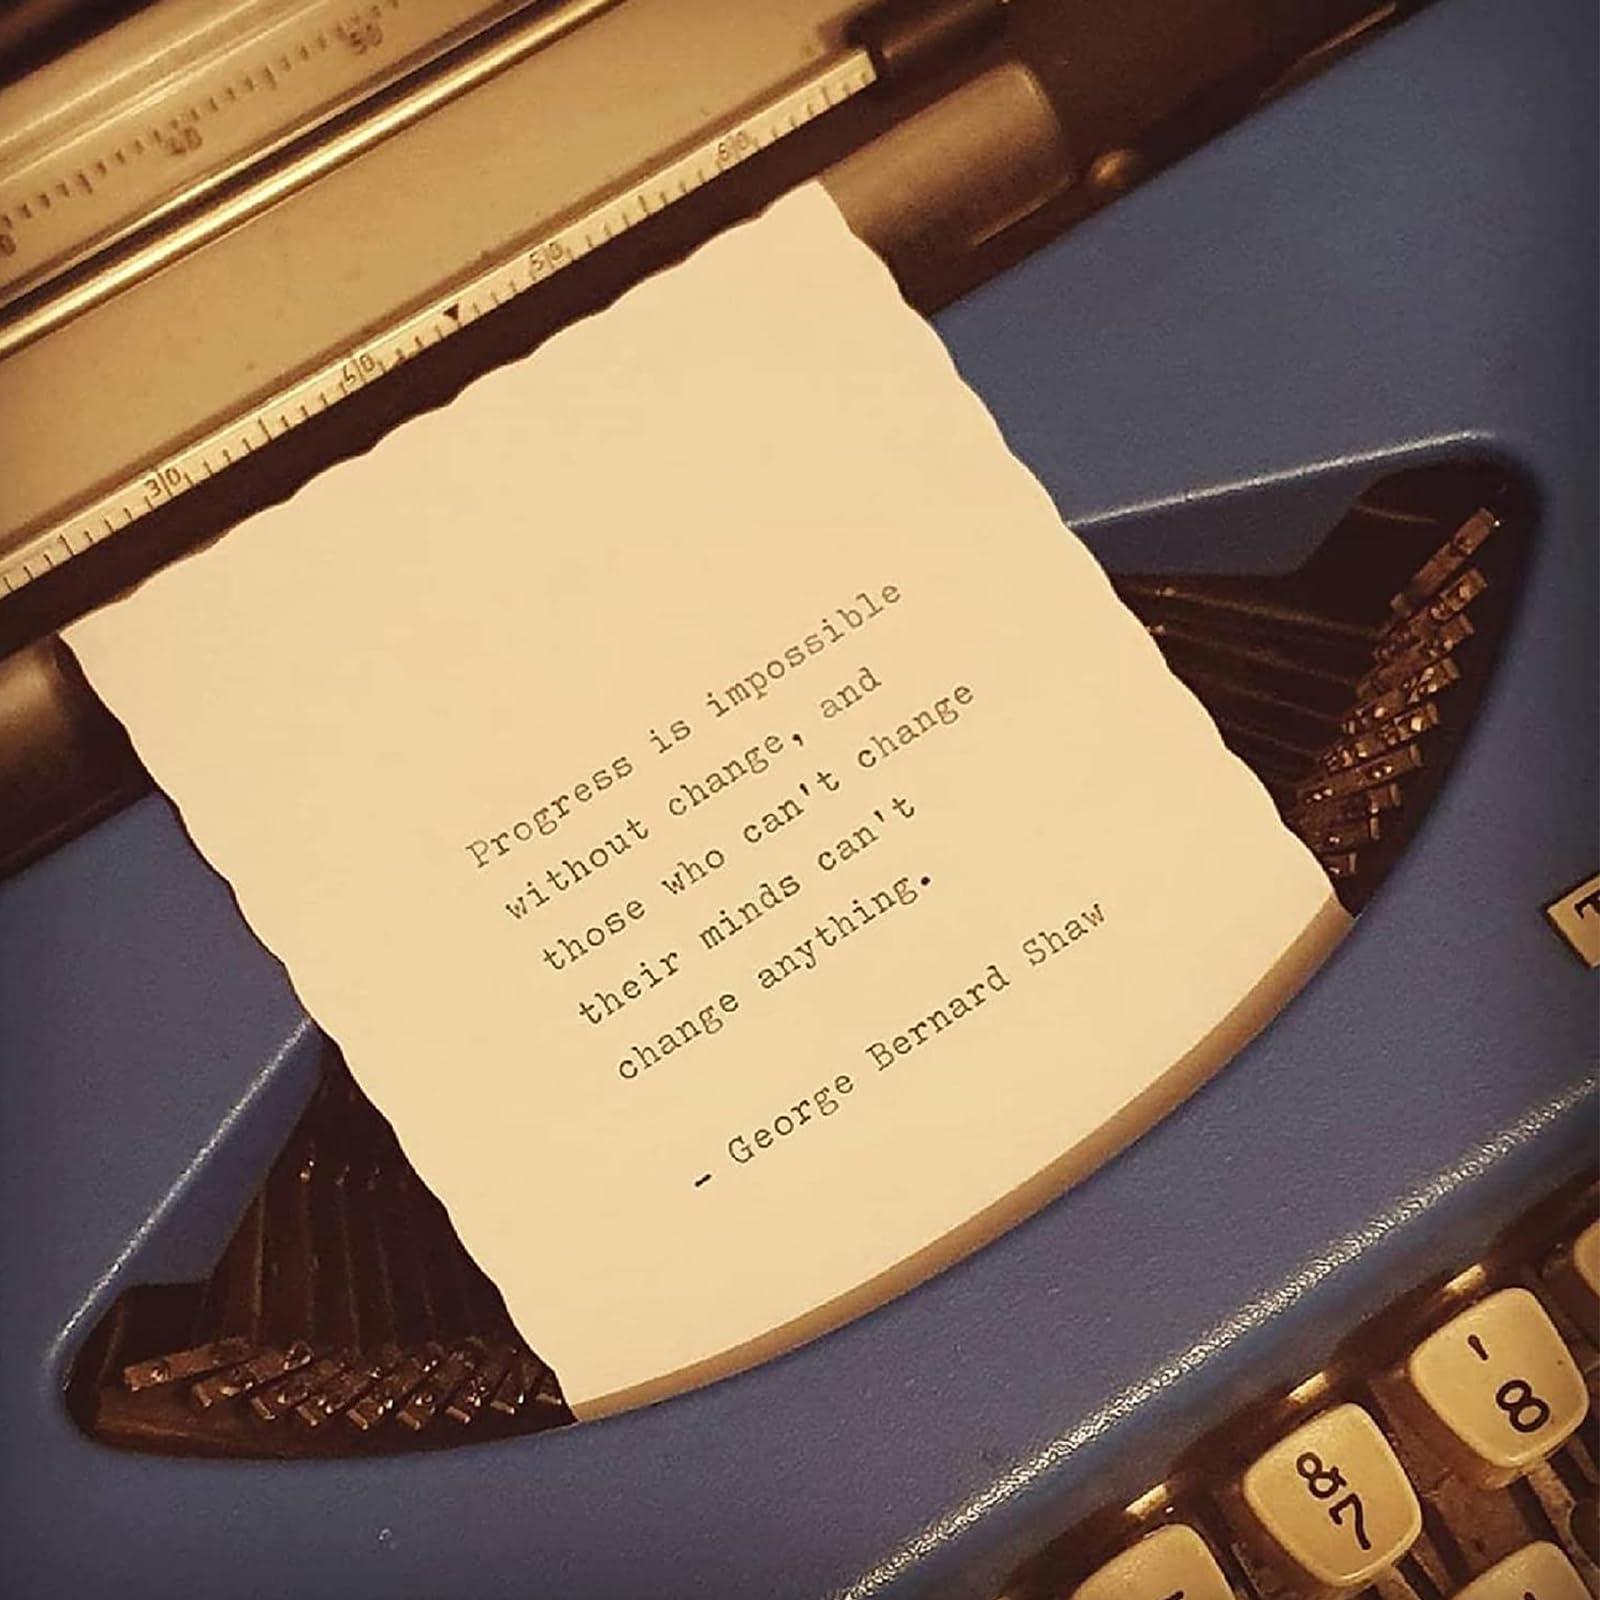 50
40
60
50
40
30
Progress is impossible
without change, and
those who can't change
their minds can't
change anything.
- George Bernard Shaw
' 8
& 7